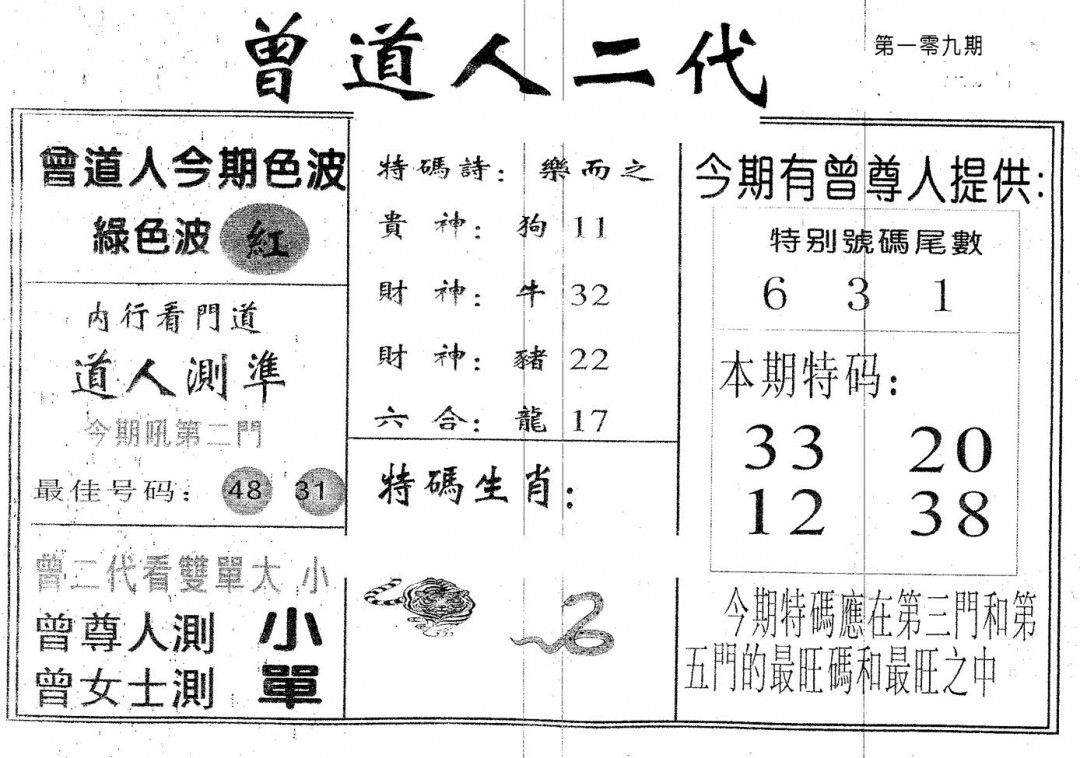 曾道人二代
第一零九期
曾道人今期色波
綠色波 紅
内行看門道
道人測準
今期吼第二門
最佳号码： 48 31
曾二代看雙單大 小
曾尊人測 小
曾女士測 單
特碼詩： 樂而之
貴 神： 狗 11
財 神： 牛 32
財 神： 豬 22
六 合： 龍 17
特碼生肖：
今期有曾尊人提供：
特别號碼尾數
6 3 1
本期特码：
33 20
12 38
今期特碼應在第三門和第
五門的最旺碼和最旺之中